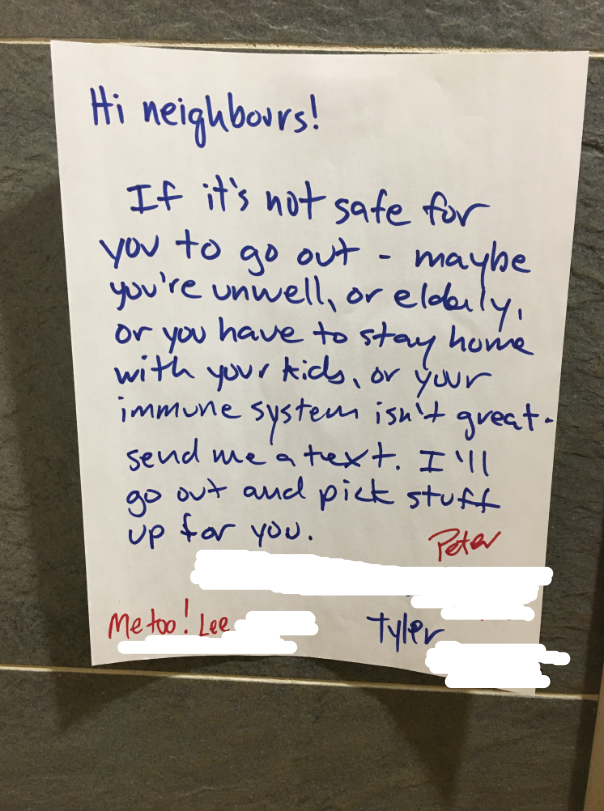 Hi neighbours!
If it's not safe for
you to go out - maybe
you're unwell, or elderly,
or you have to stay home
with your kids, or your
immune system isn't great-
send me a text. I'll
go out and pick stuff
up for you.
Peter
Me too! Lee
Tyler